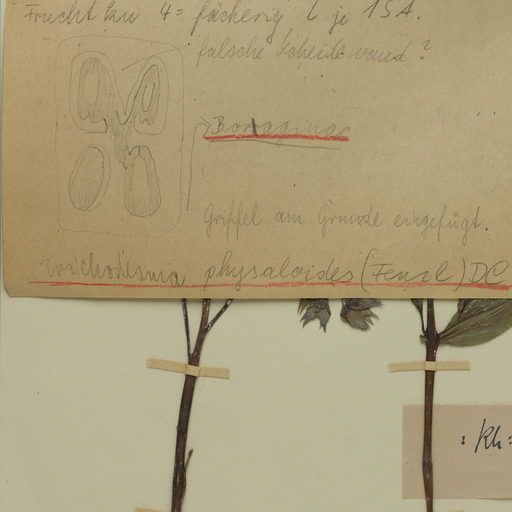 Fruchtkn 4= fächerig (je 1 SA.
falsche Scheidewand?
Borragina
Griffel am Grunde eingefügt.
Trichodesma physaloides (Fenzl) DC
: Kh: